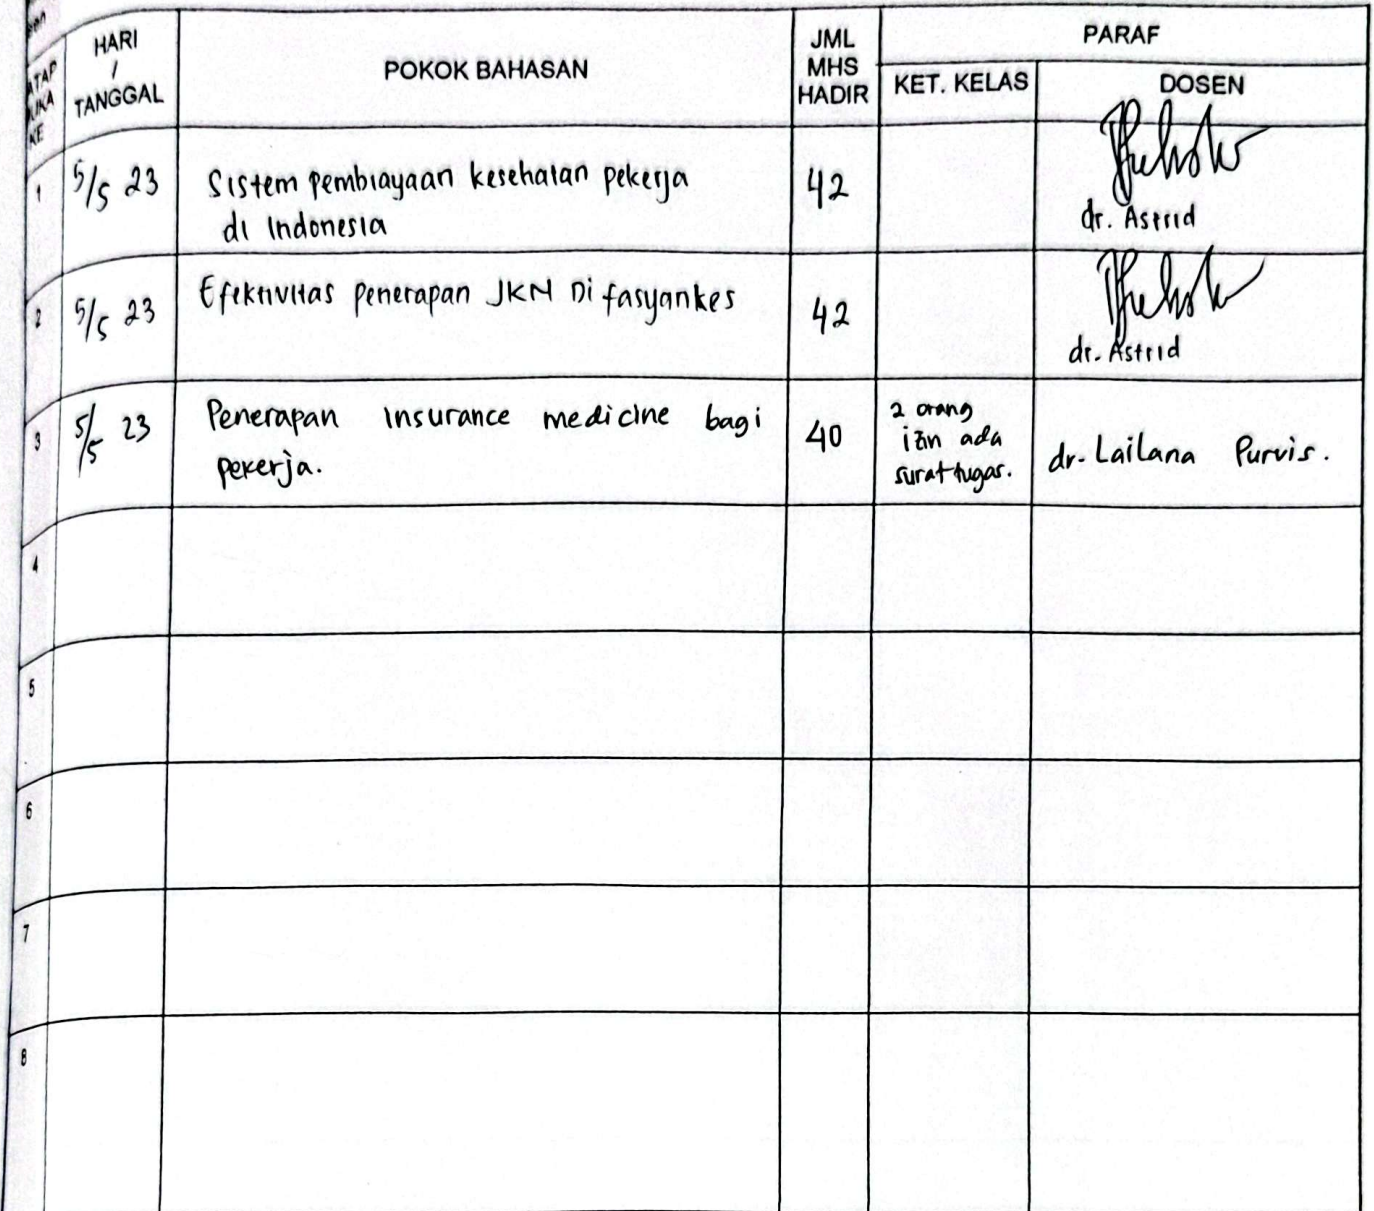 HARI
/
TANGGAL
POKOK BAHASAN
JML
MHS
HADIR
PARAF
KET. KELAS
DOSEN
KE
1
5/5 23
Sistem pembiayaan kesehatan pekerja
di Indonesia
42
dr. Astrid
2
5/5 23
Efektivitas penerapan JKN Di fasyankes
42
dr. Astrid
3
5/5 23
Penerapan insurance medicine bagi
pekerja.
40
2 orang
izin ada
surat tugas.
dr. Lailana Purvis.
4
5
6
7
8